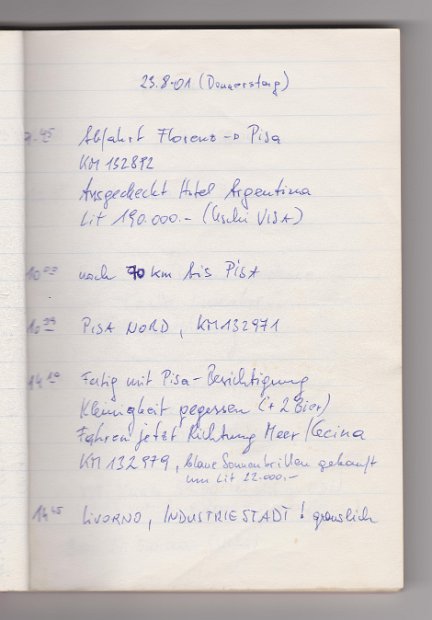 23.8.01 (Donnerstag)
9.45 Abfahrt Florenz → Pisa
KM 132892
Ausgecheckt Hotel Argentina
Lit 190.000.- (Uschi VISA)
10 03 noch 70 km bis PISA
10 39 PISA NORD, KM132971
14 10 Fertig mit Pisa-Besichtigung
Kleinigkeit gegessen (+ 2 Bier)
Fahren jetzt Richtung Meer/Cecina
KM 132979, blaue Sonnenbrillen gekauft
um Lit 22.000,-
14 45 LIVORNO, INDUSTRIESTADT! grauslich